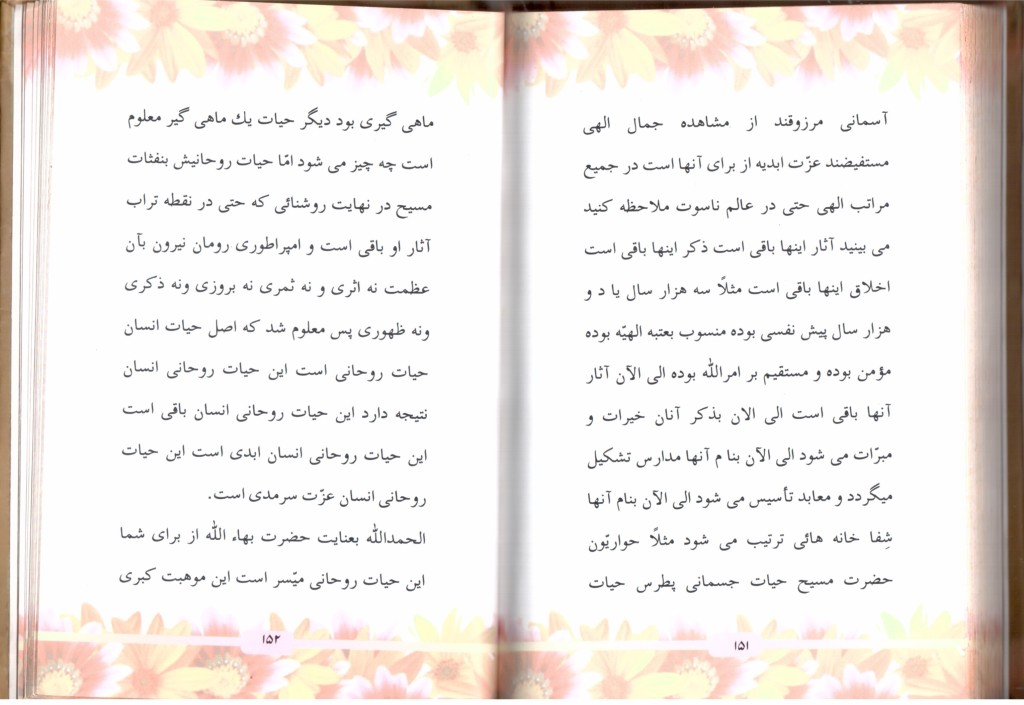 آسمانی مرزوقند از مشاهده جمال الهی
مستفیضند عزّت ابدیه از برای آنها است در جمیع
مراتب الهی حتی در عالم ناسوت ملاحظه کنید
می بینید آثار اینها باقی است ذکر اینها باقی است
اخلاق اینها باقی است مثلاً سه هزار سال یا د و
هزار سال پیش نفسی بوده منسوب بعتبه الهیّه بوده
مؤمن بوده و مستقیم بر امرالله بوده الی الآن آثار
آنها باقی است الی الان بذکر آنان خیرات و
مبرّات می شود الی الآن بنا م آنها مدارس تشکیل
میگردد و معابد تأسیس می شود الی الآن بنام آنها
شِفا خانه هائی ترتیب می شود مثلاً حواریّون
حضرت مسیح حیات جسمانی پطرس حیات
۱۵۱
ماهی گیری بود دیگر حیات یك ماهی گیر معلوم
است چه چیز می شود امّا حیات روحانیش بنفثات
مسیح در نهایت روشنائی که حتی در نقطه تراب
آثار او باقی است و امپراطوری رومان نیرون بآن
عظمت نه اثری و نه ثمری نه بروزی ونه ذکری
ونه ظهوری پس معلوم شد که اصل حیات انسان
حیات روحانی است این حیات روحانی انسان
نتیجه دارد این حیات روحانی انسان باقی است
این حیات روحانی انسان ابدی است این حیات
روحانی انسان عزّت سرمدی است.
الحمدالله بعنایت حضرت بهاء الله از برای شما
این حیات روحانی میّسر است این موهبت کبری
۱۵۲